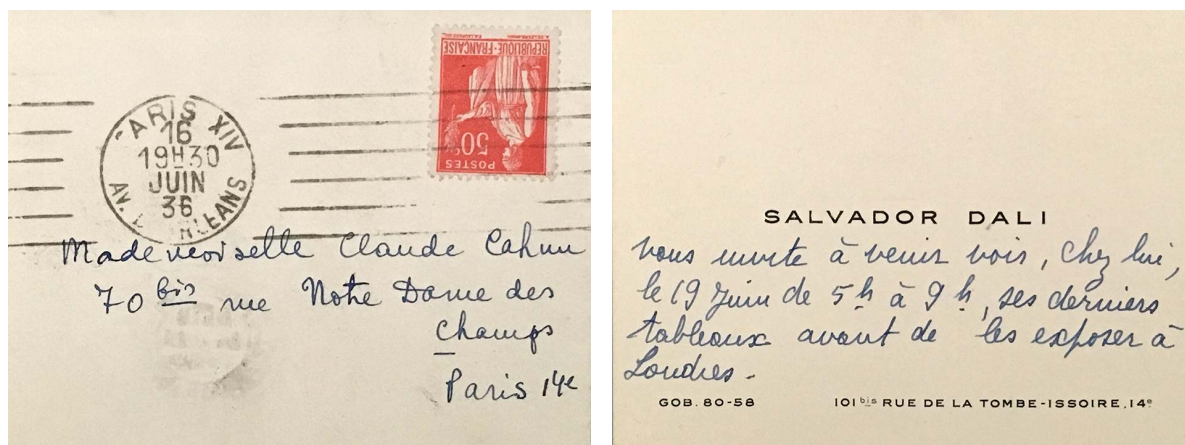 PARIS XIV
16
19H30
JUIN
36
AV. D'ORLEANS
REPUBLIQUE-FRANÇAISE
50c
POSTES
Mademoiselle Claude Cahun
70 bis rue Notre Dame des
Champs
Paris 14e
SALVADOR DALI
vous invite à venir voir, chez lui,
le 19 Juin de 5 h à 9 h, ses derniers
tableaux avant de les exposer à
Londres.
GOB. 80-58 101 bis RUE DE LA TOMBE-ISSOIRE.14e